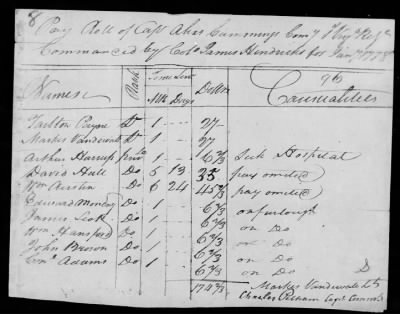 8
Pay Roll of Capt Alex Cummings Comy 1st Va Regt
Commanded by Colo James Hendricks for Jany 1778
Names Rank Time Serv Mth Days Dollars 96 Casualities
Tarlton Payne Lt 1 - 27
Markes Vandewall Lt 1 - 27
Arthur Harrup 1 - 6 2/3 Sick Hospital
David Hull Do 5 13 35 pay omited
Wm Austin Do 6 24 45 1/3 pay omited
Edward Do 1 6 2/3 on furlough
James Scott Do 1 6 2/3 on Do
Wm Hansford Do 1 6 2/3 on Do
John Brown Do 1 6 2/3 on Do
Adams Do 1 6 2/3 on Do
174 2/3 Markes Vandewall Lt
Charles Pelham Capt Comd